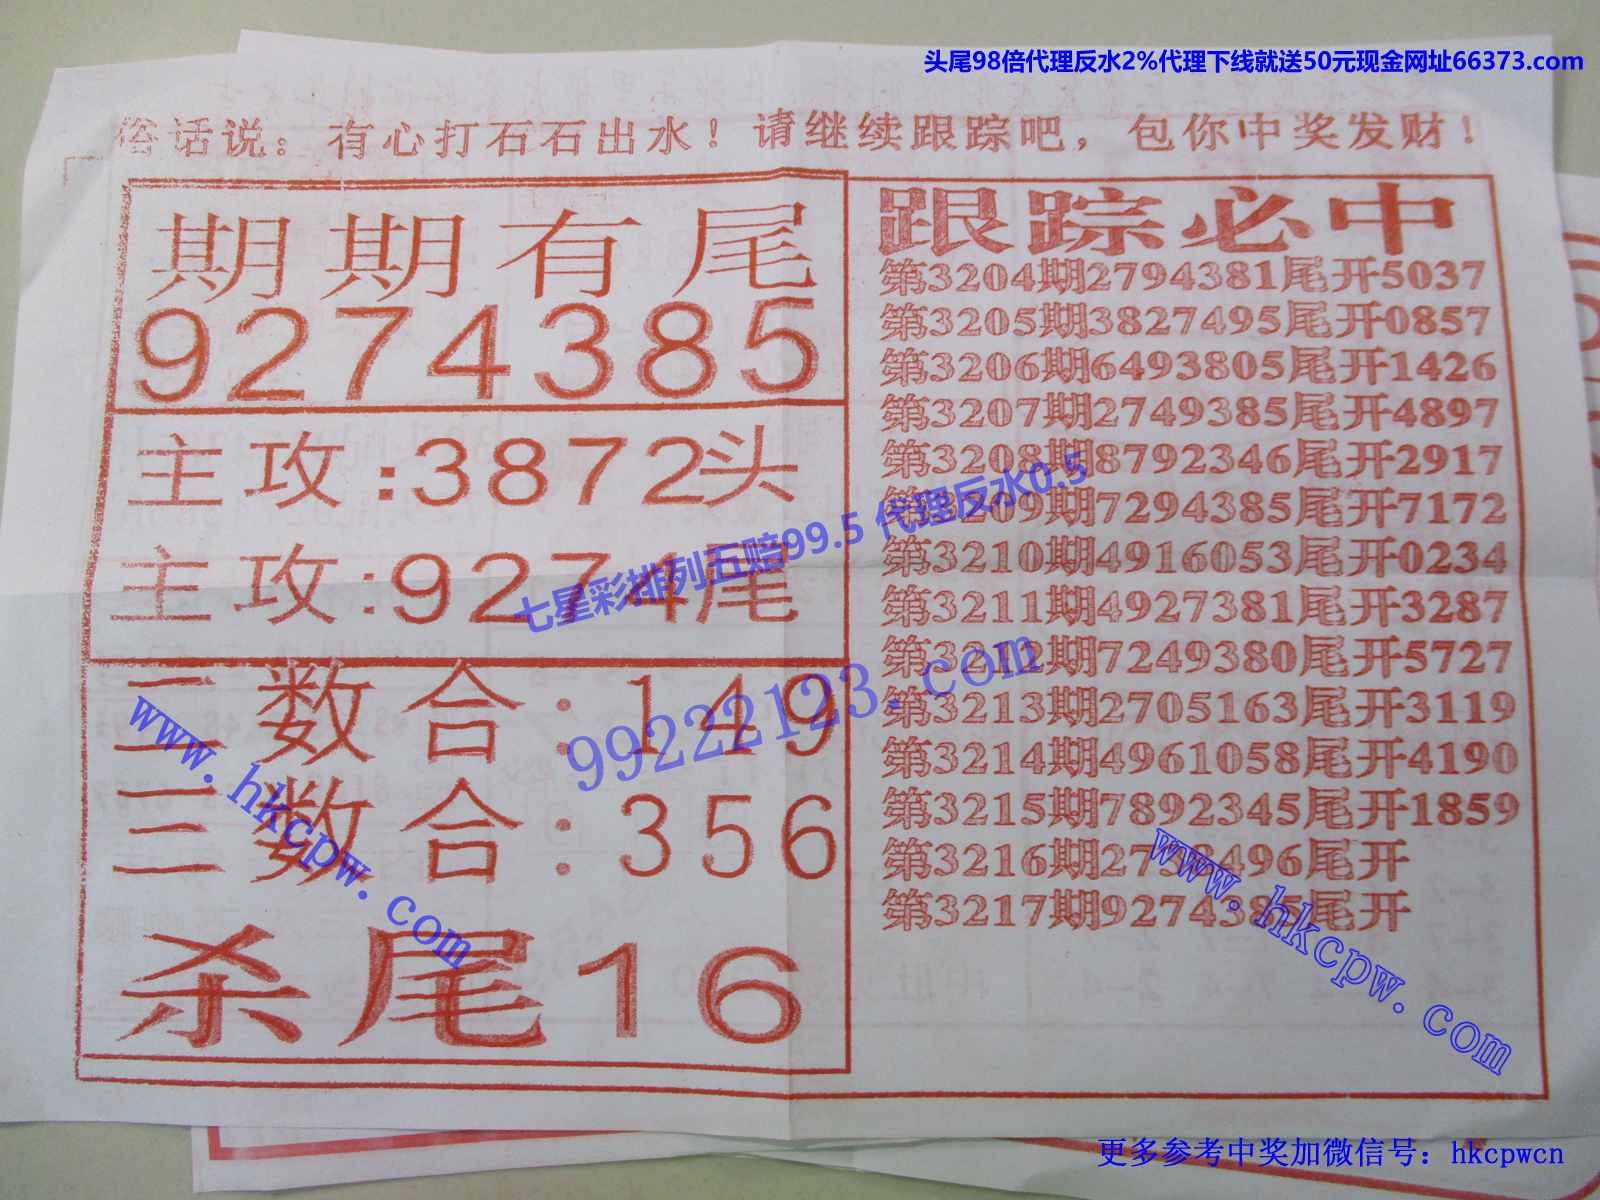 头尾98倍代理反水2%代理下线就送50元现金网址66373.com
俗话说：有心打石石出水！请继续跟踪吧，包你中奖发财！
期期有尾
9274385
主攻:3872头
主攻:9274尾
二数合:149
三数合:356
杀尾16
跟踪必中
第3204期2794381尾开5037
第3205期3827495尾开0857
第3206期6493805尾开1426
第3207期2749385尾开4897
第3208期8792346尾开2917
第3209期7294385尾开7172
第3210期4916053尾开0234
第3211期4927381尾开3287
第3212期7249380尾开5727
第3213期2705163尾开3119
第3214期4961058尾开4190
第3215期7892345尾开1859
第3216期27 3496尾开
第3217期9274385尾开
七星彩排列五赔99.5 代理反水0.5
99222123.com
www.hkcpw.com
www.hkcpw.com
更多参考中奖加微信号：hkcpwcn